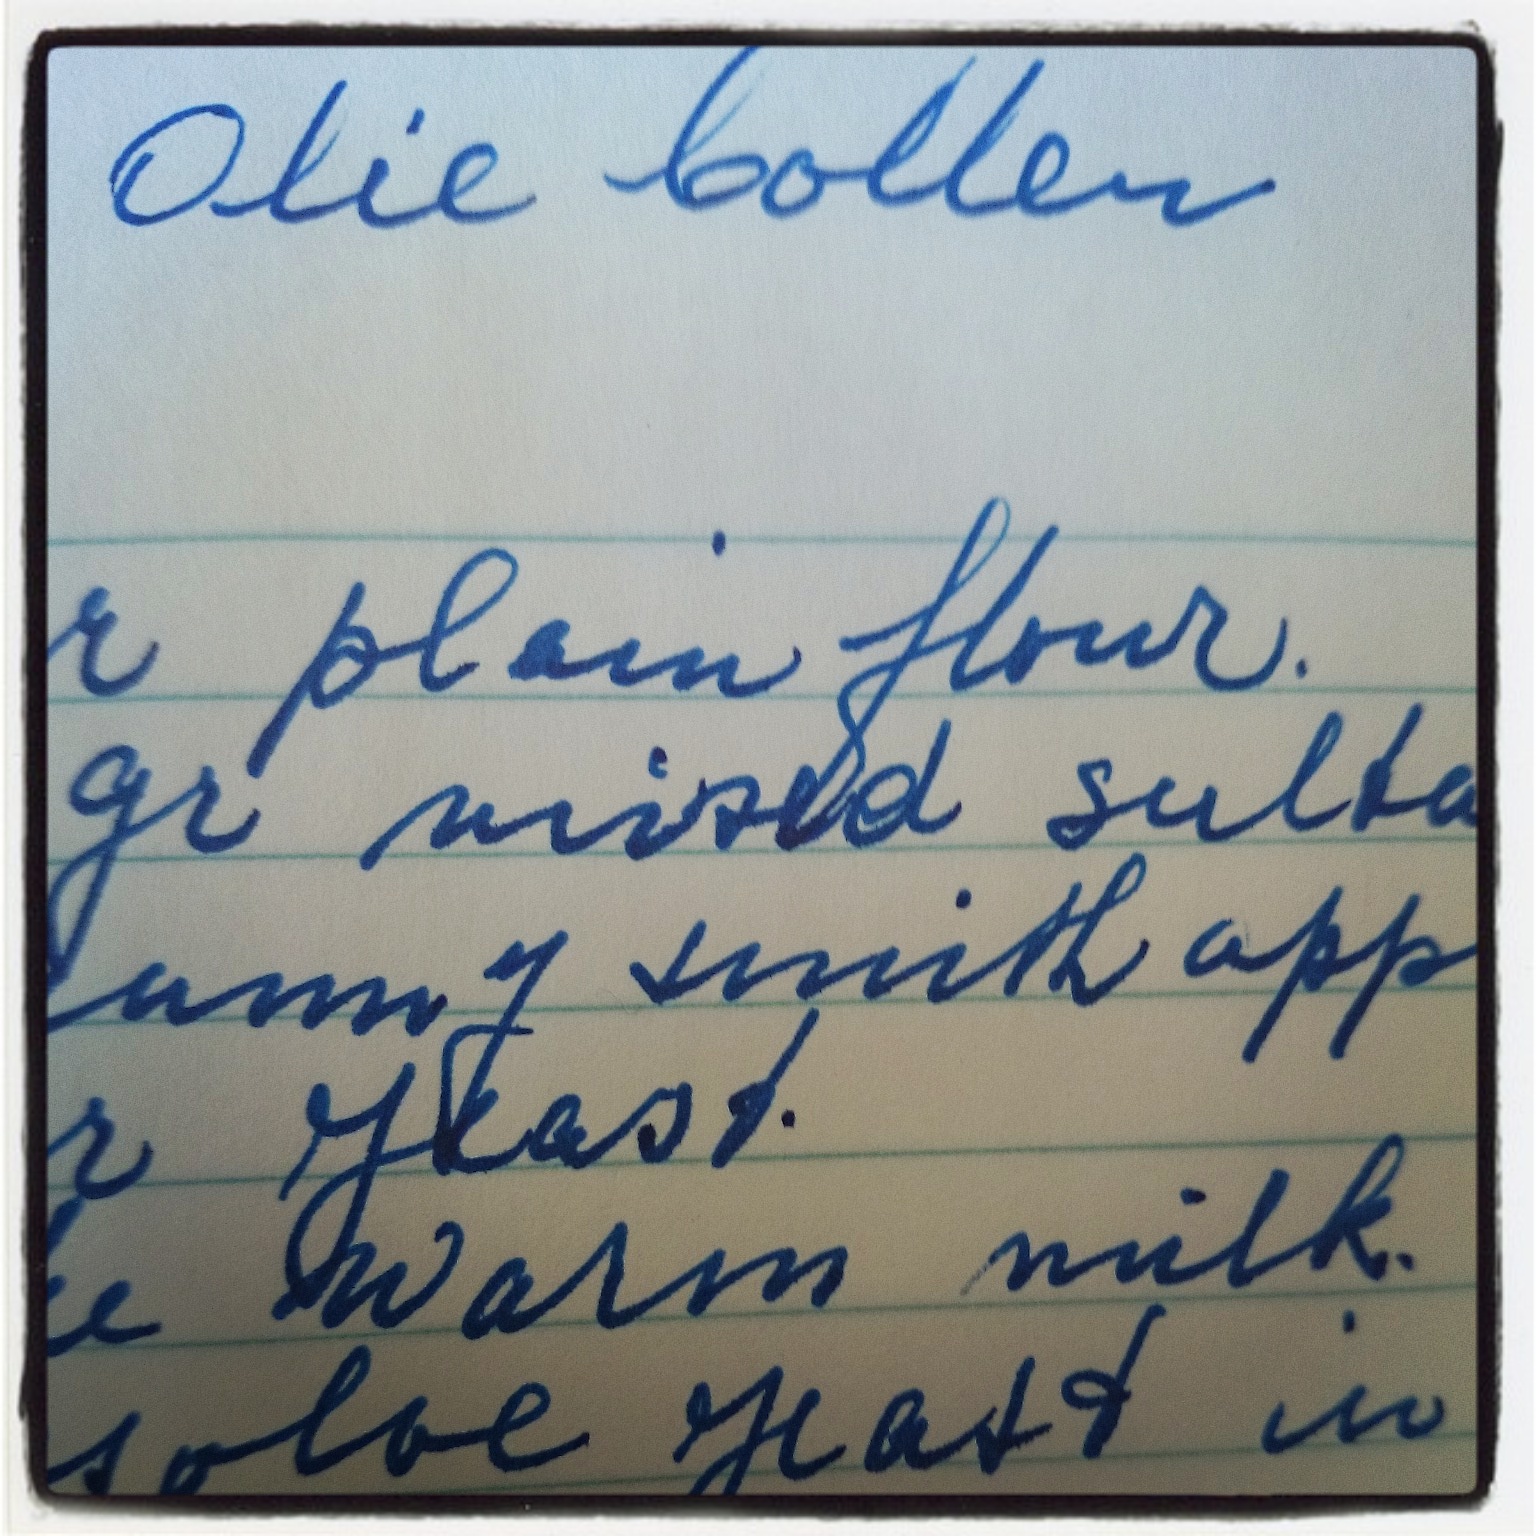 Olie bollen
r plain flour.
gr mixed sulta
anny smith app
r yeast.
e warm milk.
solve yeast in